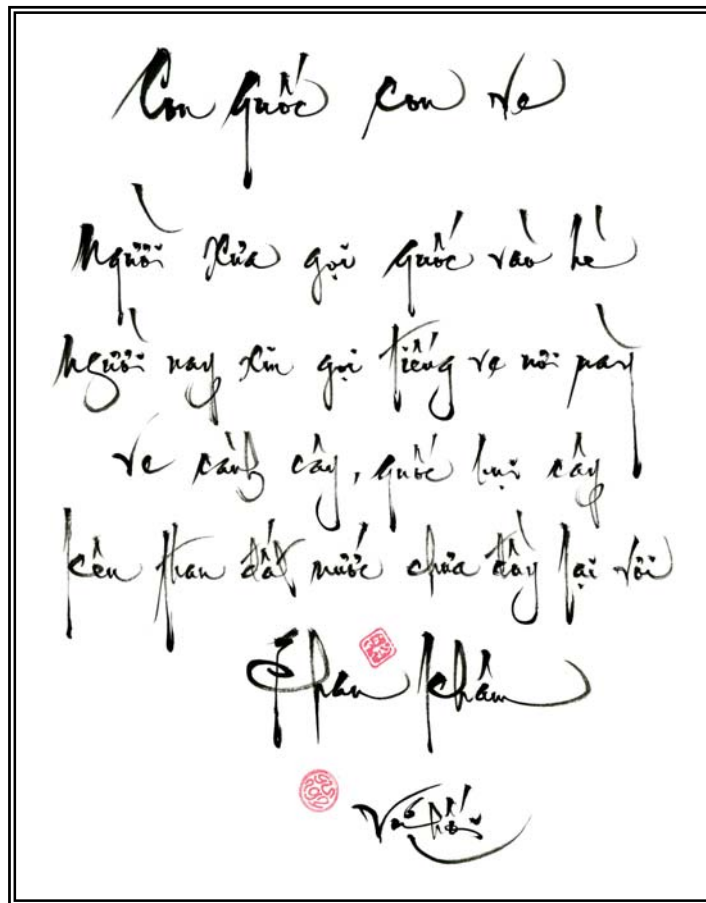 Con quốc con ve
Người xưa gọi quốc vào hè
Người nay xin gọi tiếng ve nơi này
Ve cành cây, quốc bụi cây
Kêu than đất nước chưa đầy lại vơi
Phan Khâm